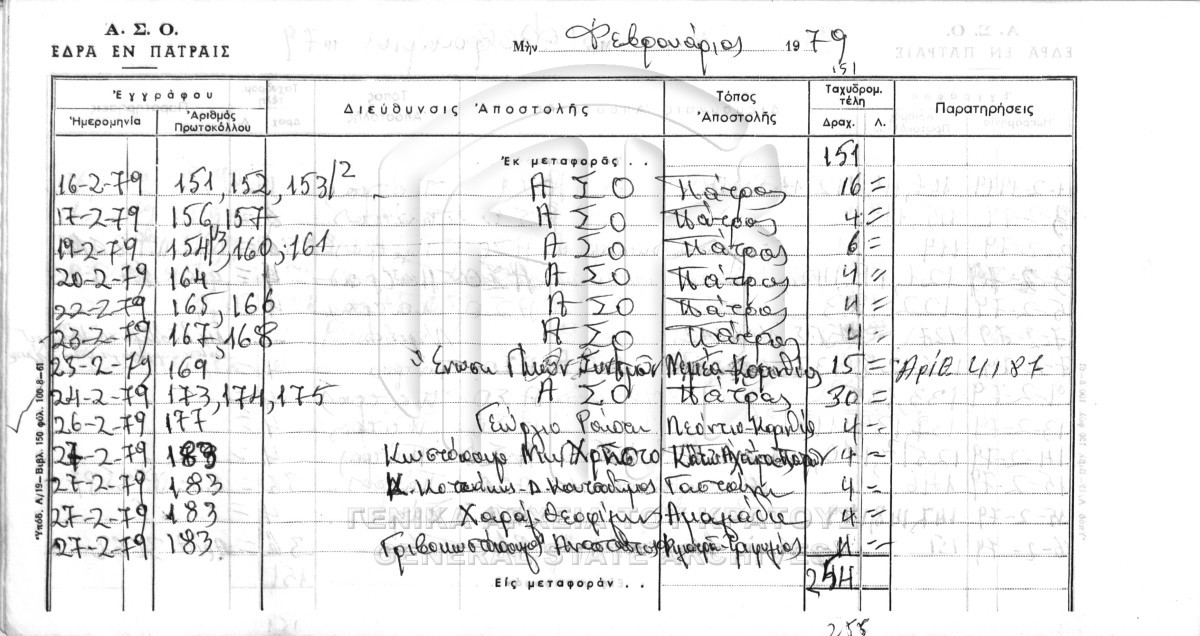 Α. Σ. Ο.
ΕΔΡΑ ΕΝ ΠΑΤΡΑΙΣ
Μὴν Φεβρουάριος 1979
151
Ἐγγράφου Διεύθυνσις Ἀποστολῆς Τόπος Ἀποστολῆς Ταχυδρομ. τέλη Παρατηρήσεις
Ἡμερομηνία Ἀριθμὸς Πρωτοκόλλου Δραχ. Λ.
Ἐκ μεταφορᾶς . . 151
16-2-79 151, 152, 153/2 Α Σ Ο Πάτρας 16 =
17-2-79 156, 157 Α Σ Ο Πάτρας 4 =
19-2-79 154/3, 160, 161 Α Σ Ο Πάτρας 6 =
20-2-79 164 Α Σ Ο Πάτρας 4 =
22-2-79 165, 166 Α Σ Ο Πάτρας 4 =
23-2-79 167, 168 Α Σ Ο Πάτρας 4 =
23-2-79 169 Ένωση Νεμέα Κορινθίας 15 = Αριθ. 4187
24-2-79 173, 174, 175 Α Σ Ο Πάτρας 30 =
26-2-79 177 Γεώργιο 4 =
27-2-79 183 Χρήστο 4 =
27-2-79 183 Γαστούνη 4 =
27-2-79 183 Χαράλ. Αμαλιάδα 4 =
27-2-79 183 4 =
Εἰς μεταφορὰν . . 254
258
Ὑπόδ. Α/19—Βιβλ. 150 φύλ. 100-8-61
ΓΕΝΙΚΑ ΑΡΧΕΙΑ ΤΟΥ ΚΡΑΤΟΥΣ
GENERAL STATE ARCHIVES